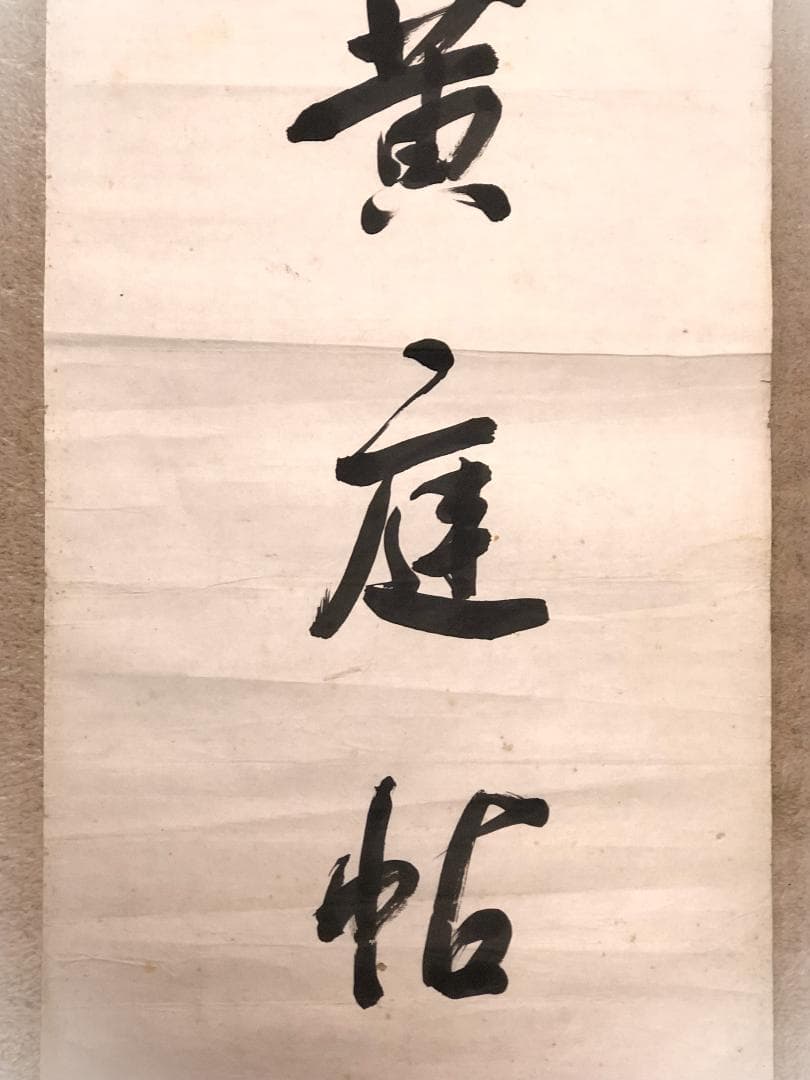 黄庭帖